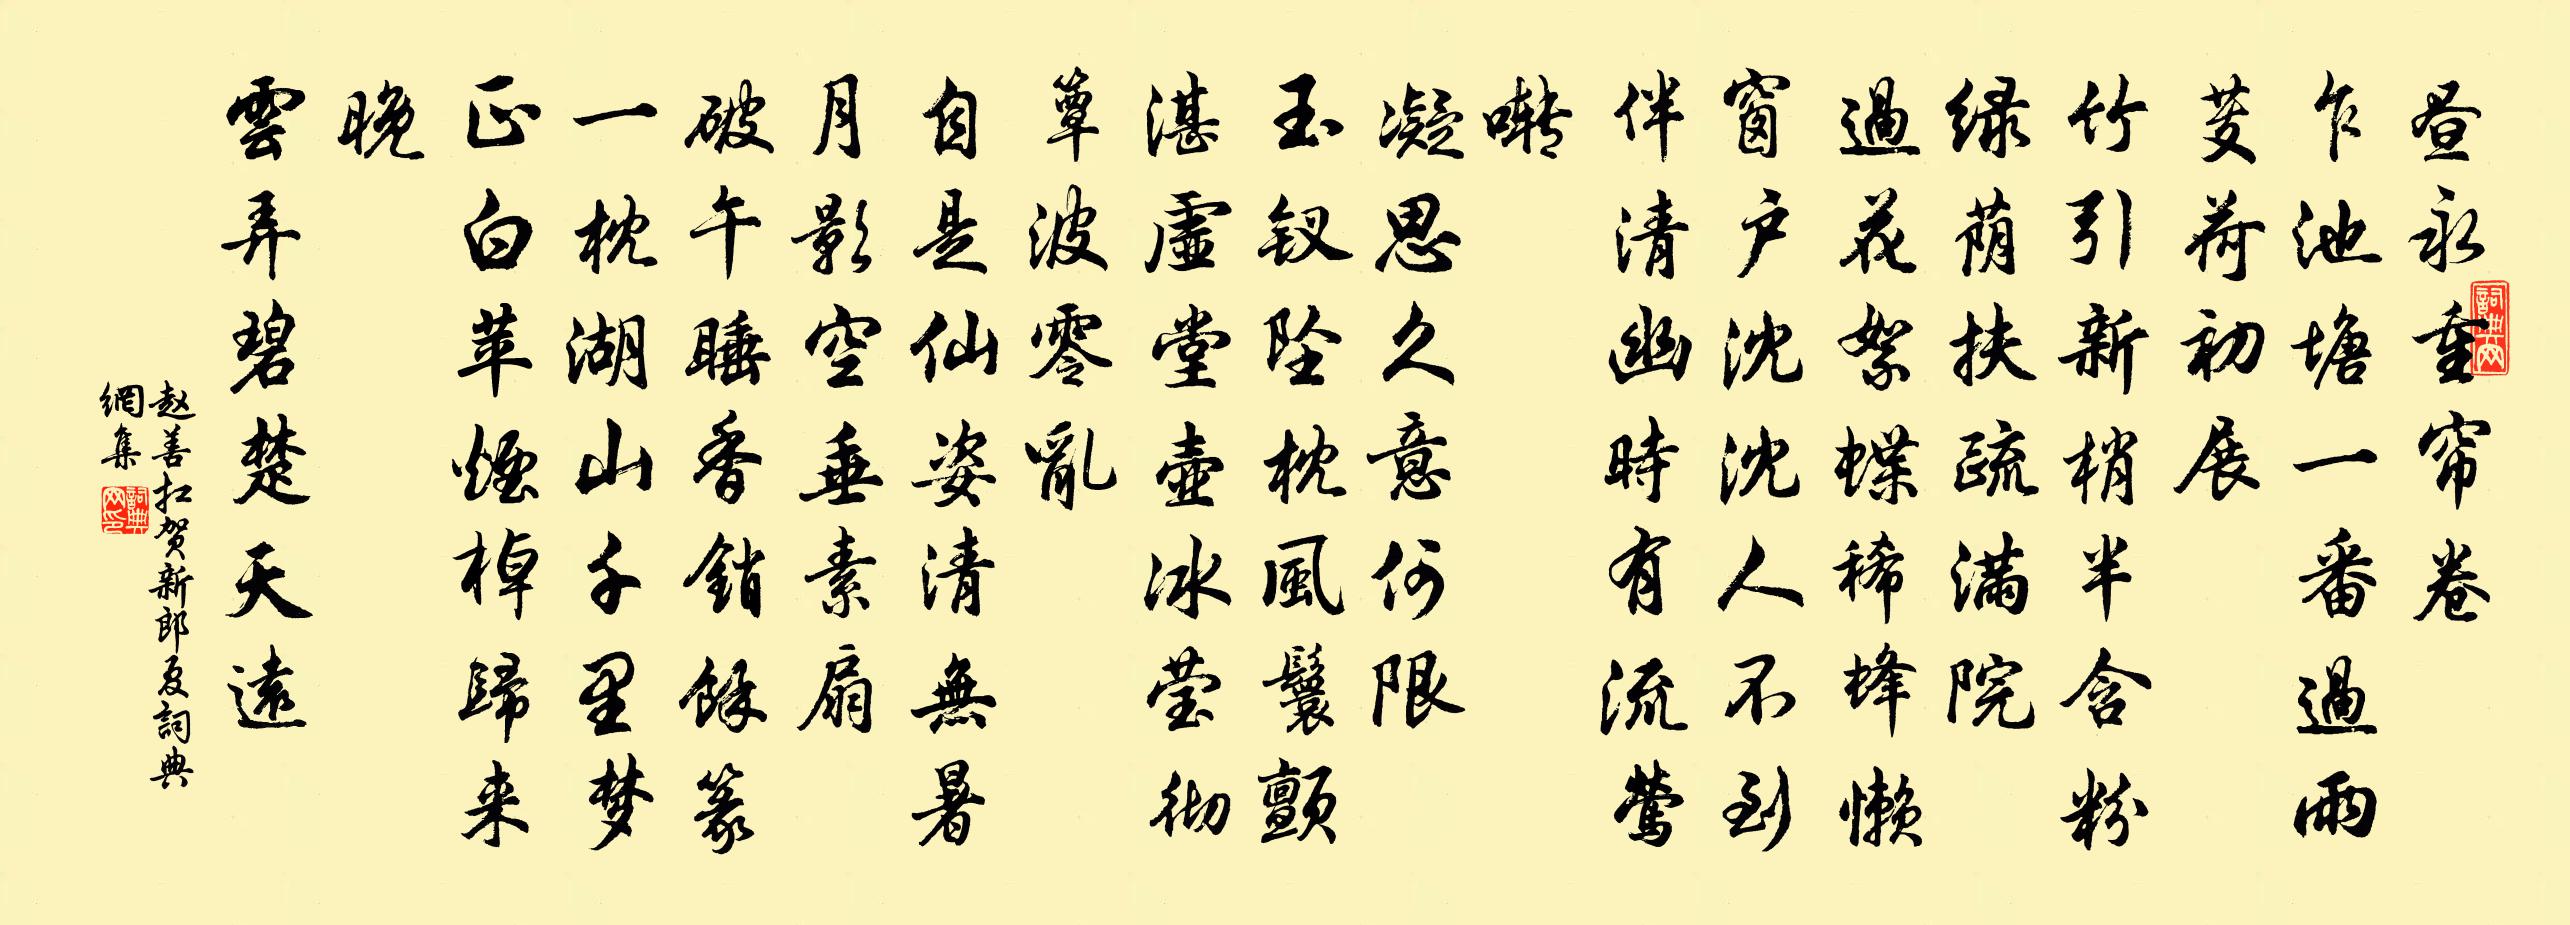 昼永重帘卷
乍池塘一番過雨
芰荷初展
竹引新梢半含粉
緑荫扶疏满院
過花絮蝶稀蜂懒
窗户沈沈人不到
伴清幽時有流莺
啭
凝思久意何限
玉钗坠枕風鬟颤
湛虚堂壶冰莹彻
簟波零亂
自是仙姿清無暑
月影空垂素扇
破午睡香銷餘篆
一枕湖山千里梦
正白苹煙棹歸来
晚
雲弄碧楚天遠
赵善扛贺新郎夏詞典
網集